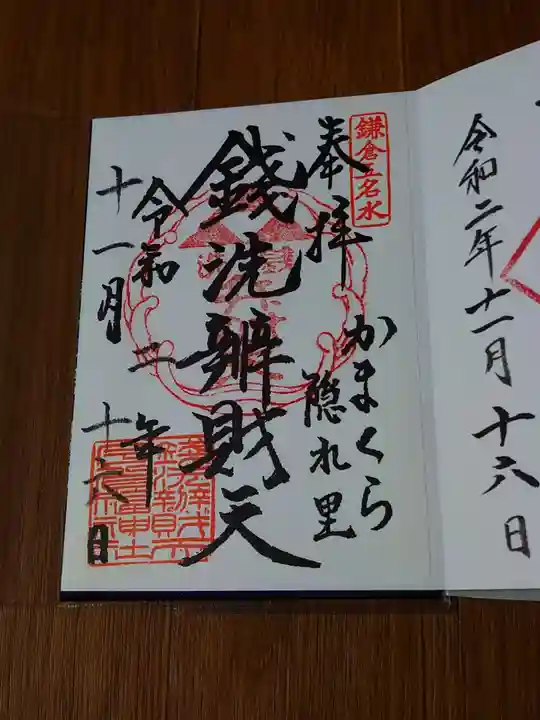 鎌倉五名水
奉拝
かまくら
隠れ里
銭洗辨財天
令和二年
十一月十六日
令和二年十一月十六日